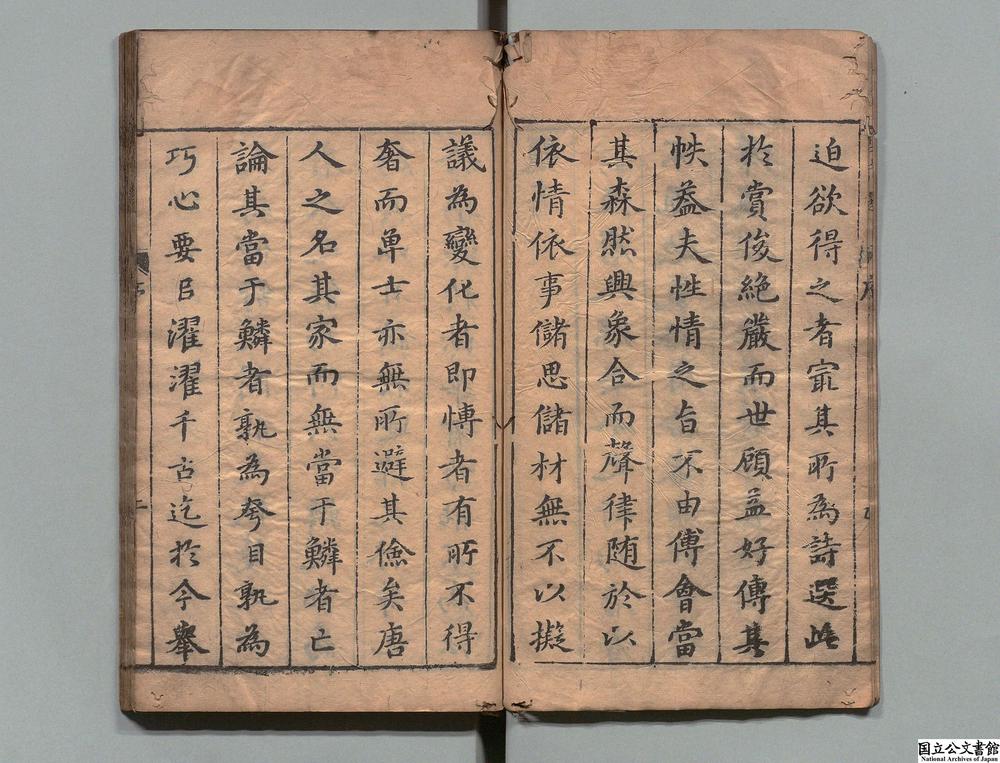 迫欲得之者寘其所為詩選此
扵賞俊絶嚴而世顧益好傳其
帙葢夫性情之旨不由傅會當
其森然興象合而聲律随於以
依情依事儲思儲材無不以擬
議為變化者即慱者有所不得
奢而單士亦無所避其儉矣唐
人之名其家而無當于鱗者亡
論其當于鱗者孰為夸目孰為
巧心要㠯濯濯千古迄扵今舉
国立公文書館
National Archives of Japan